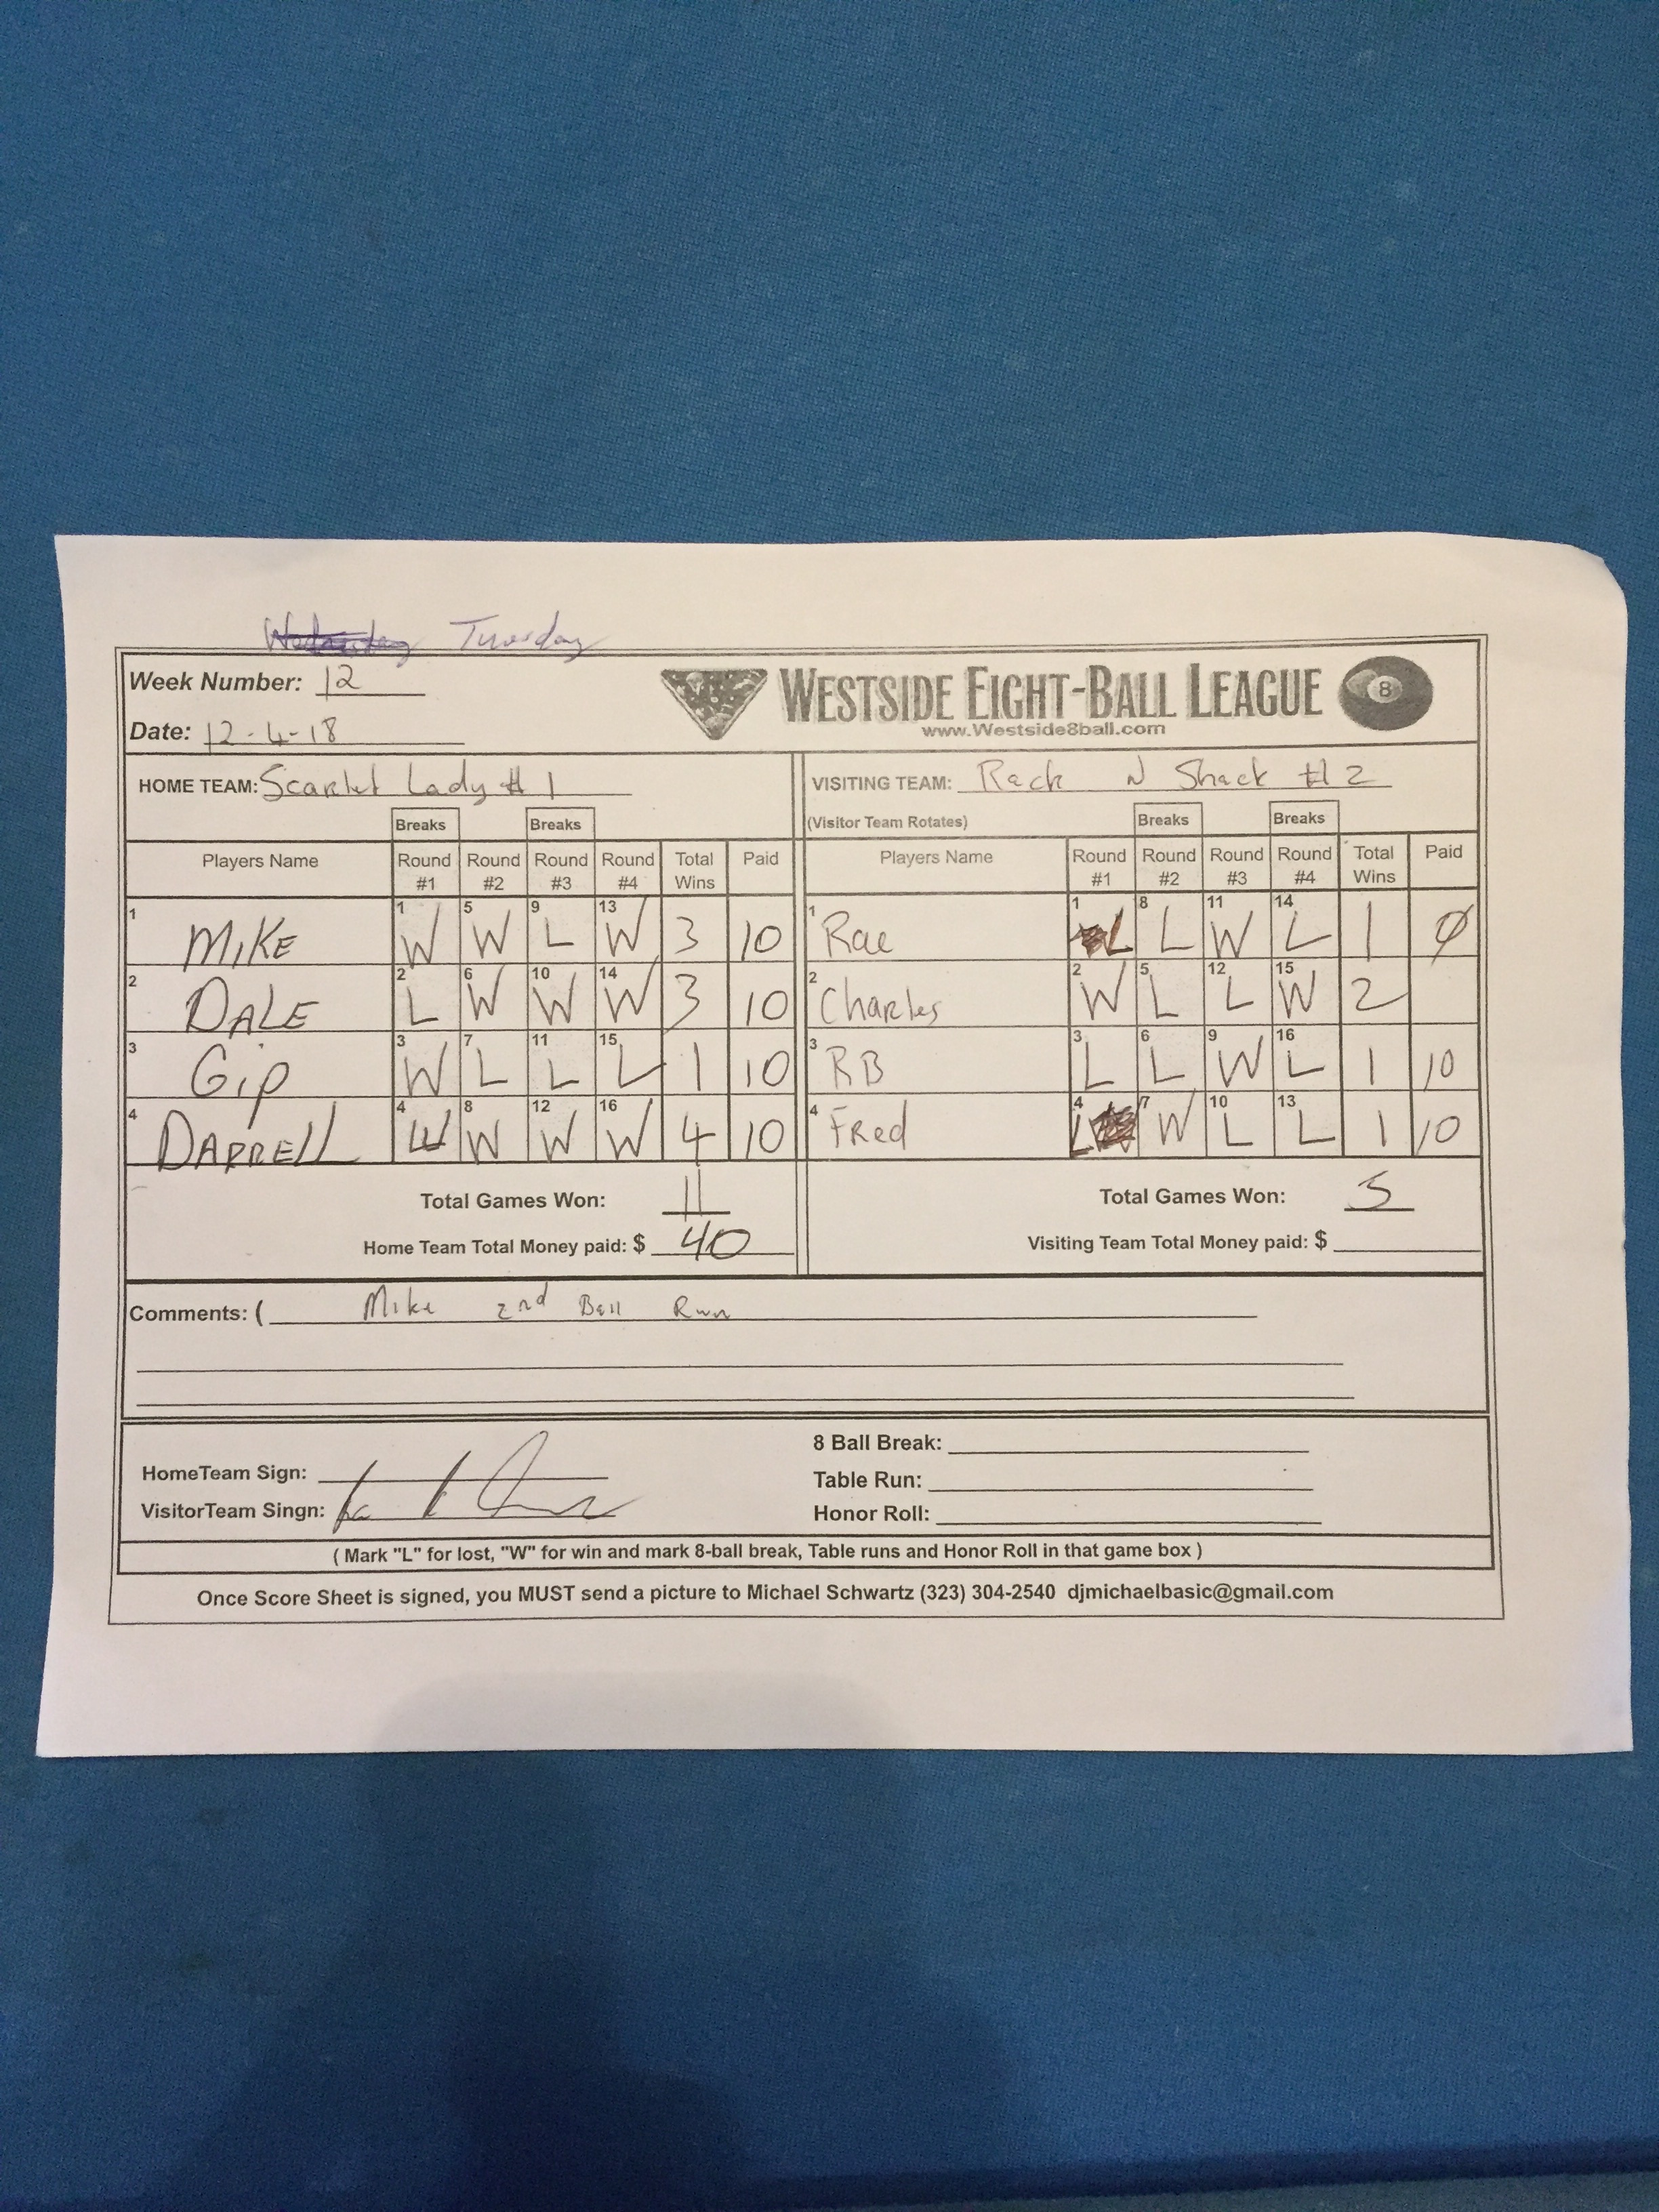 Tuesday
Week Number: 12
WESTSIDE EIGHT-BALL LEAGUE 8
www.Westside8ball.com
Date: 12-4-18
HOME TEAM: Scarlet Lady #1 VISITING TEAM: Rack N Shack #2
Breaks Breaks (Visitor Team Rotates) Breaks Breaks
Players Name Round #1 Round #2 Round #3 Round #4 Total Wins Paid Players Name Round #1 Round #2 Round #3 Round #4 Total Wins Paid
1 MIKE 1 W 5 W 9 L 13 W 3 10 1 Rae 1 L 8 L 11 W 14 L 1 0
2 DALE 2 L 6 W 10 W 14 W 3 10 2 Charles 2 W 5 L 12 L 15 W 2
3 Gip 3 W 7 L 11 L 15 L 1 10 3 RB 3 L 6 L 9 W 16 L 1 10
4 DARRELL 4 W 8 W 12 W 16 W 4 10 4 FRed 4 L 7 W 10 L 13 L 1 10
Total Games Won: 11 Total Games Won: 5
Home Team Total Money paid: $ 40 Visiting Team Total Money paid: $
Comments: ( Mike 2nd Ball Run
8 Ball Break:
HomeTeam Sign: Table Run:
VisitorTeam Singn: Honor Roll:
( Mark "L" for lost, "W" for win and mark 8-ball break, Table runs and Honor Roll in that game box )
Once Score Sheet is signed, you MUST send a picture to Michael Schwartz (323) 304-2540 djmichaelbasic@gmail.com